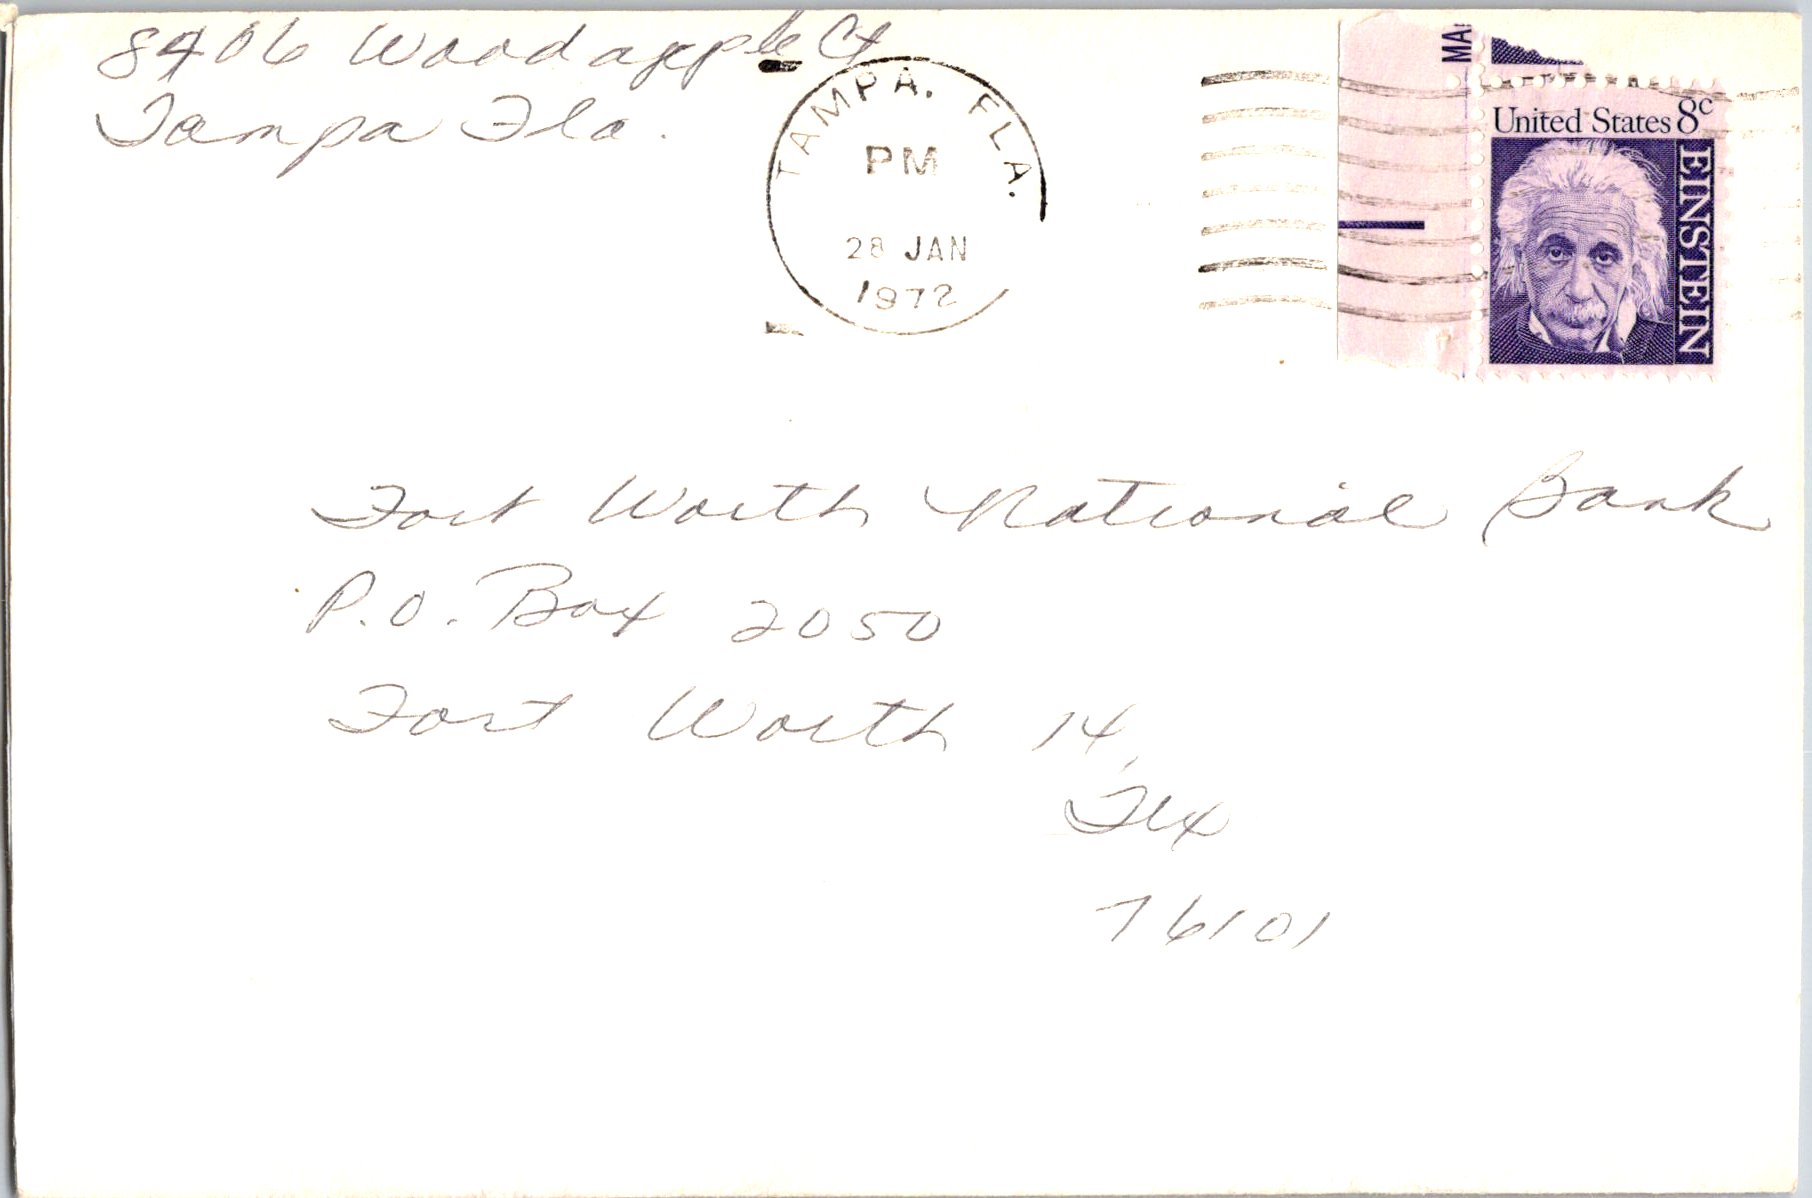 8406 Woodapple Ct
Tampa Fla.
TAMPA. FLA.
PM
28 JAN
1972
MA
United States 8c
EINSTEIN
Fort Worth National Bank
P.O. Box 2050
Fort Worth 14,
Tex
76101